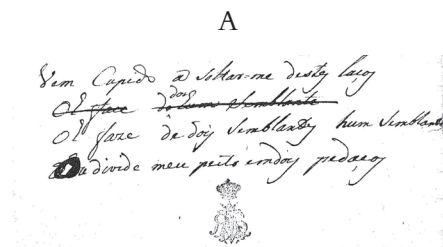 A
Vem Cupido a soltar-me destes laços
Ol faze de dois semblantes hum semblante
Ou divide meu peito em dois pedaços